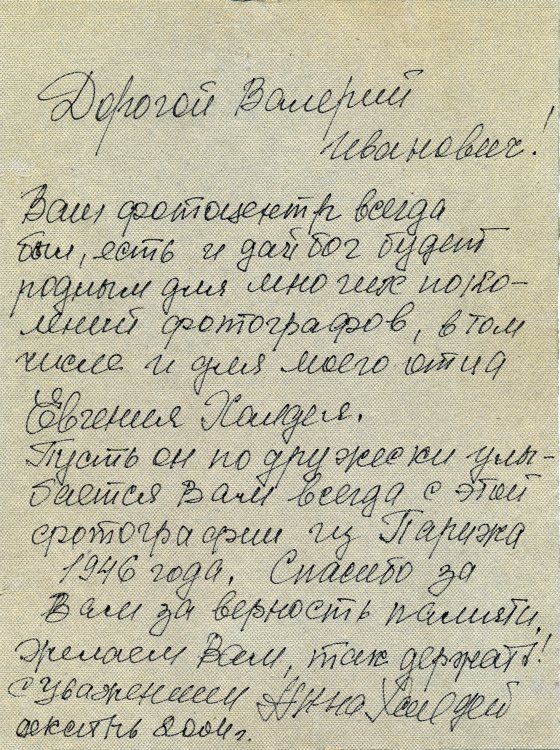 Дорогой Валерий
Иванович!
Ваш фотоцентр всегда
был, есть и дай бог будет
родным для многих поко-
лений фотографов, в том
числе и для моего отца
Евгения Халдея.
Пусть он по дружески улы-
бается Вам всегда с этой
фотографии из Парижа
1946 года. Спасибо
Вам за верность памяти.
Желаем Вам, так держать!!
с уважением Анна Халдей
2004г.